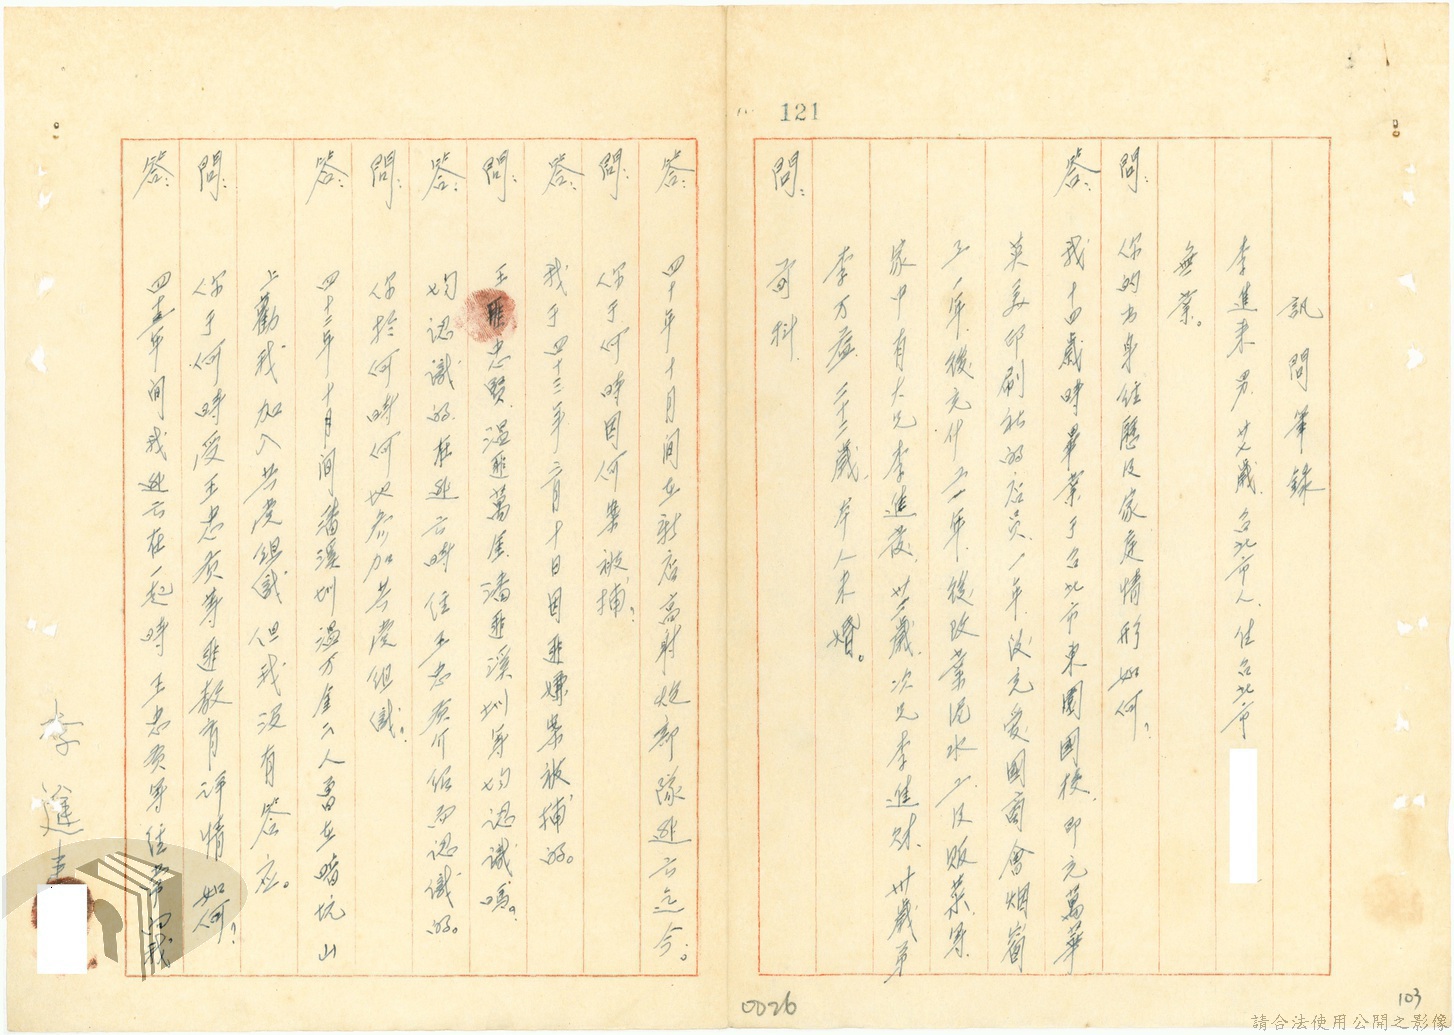 121
訊問筆錄
李進來 男 廿八歲 台北市人 住台北市
無業。
問：你的出身經歷及家庭情形如何？
答：我十四歲時畢業于台北市東園國校，即充萬華
英美印刷社的店員，一年後充愛國商會烟窗
工一年，後充什工一年，後改業泥水工及販菜等
家中有大兄李進發，卅三歲，次兄李進財，卅歲，弟
李万益，二十二歲，本人未婚。
問：前科
答：四十年十月間在新店高射炮部隊逃亡迄今。
問：你于何時因何案被捕？
答：我于四十三年二月十日因匪嫌案被捕的。
問：王匪忠賢溫匪萬金潘匪溪圳等均認識嗎？
答：均認識的，在逃亡時住王忠賢介紹而認識的。
問：你於何時何地參加共黨組織？
答：四十二年十月間潘溪圳溫万金二人曾在暗坑山
上勸我加入共黨組織但我沒有答应。
問：你于何時受王忠賢等匪教育詳情如何？
答：四十二年間我逃亡在一起時王忠賢等經常向我
李進來
0026
103
請合法使用公開之影像